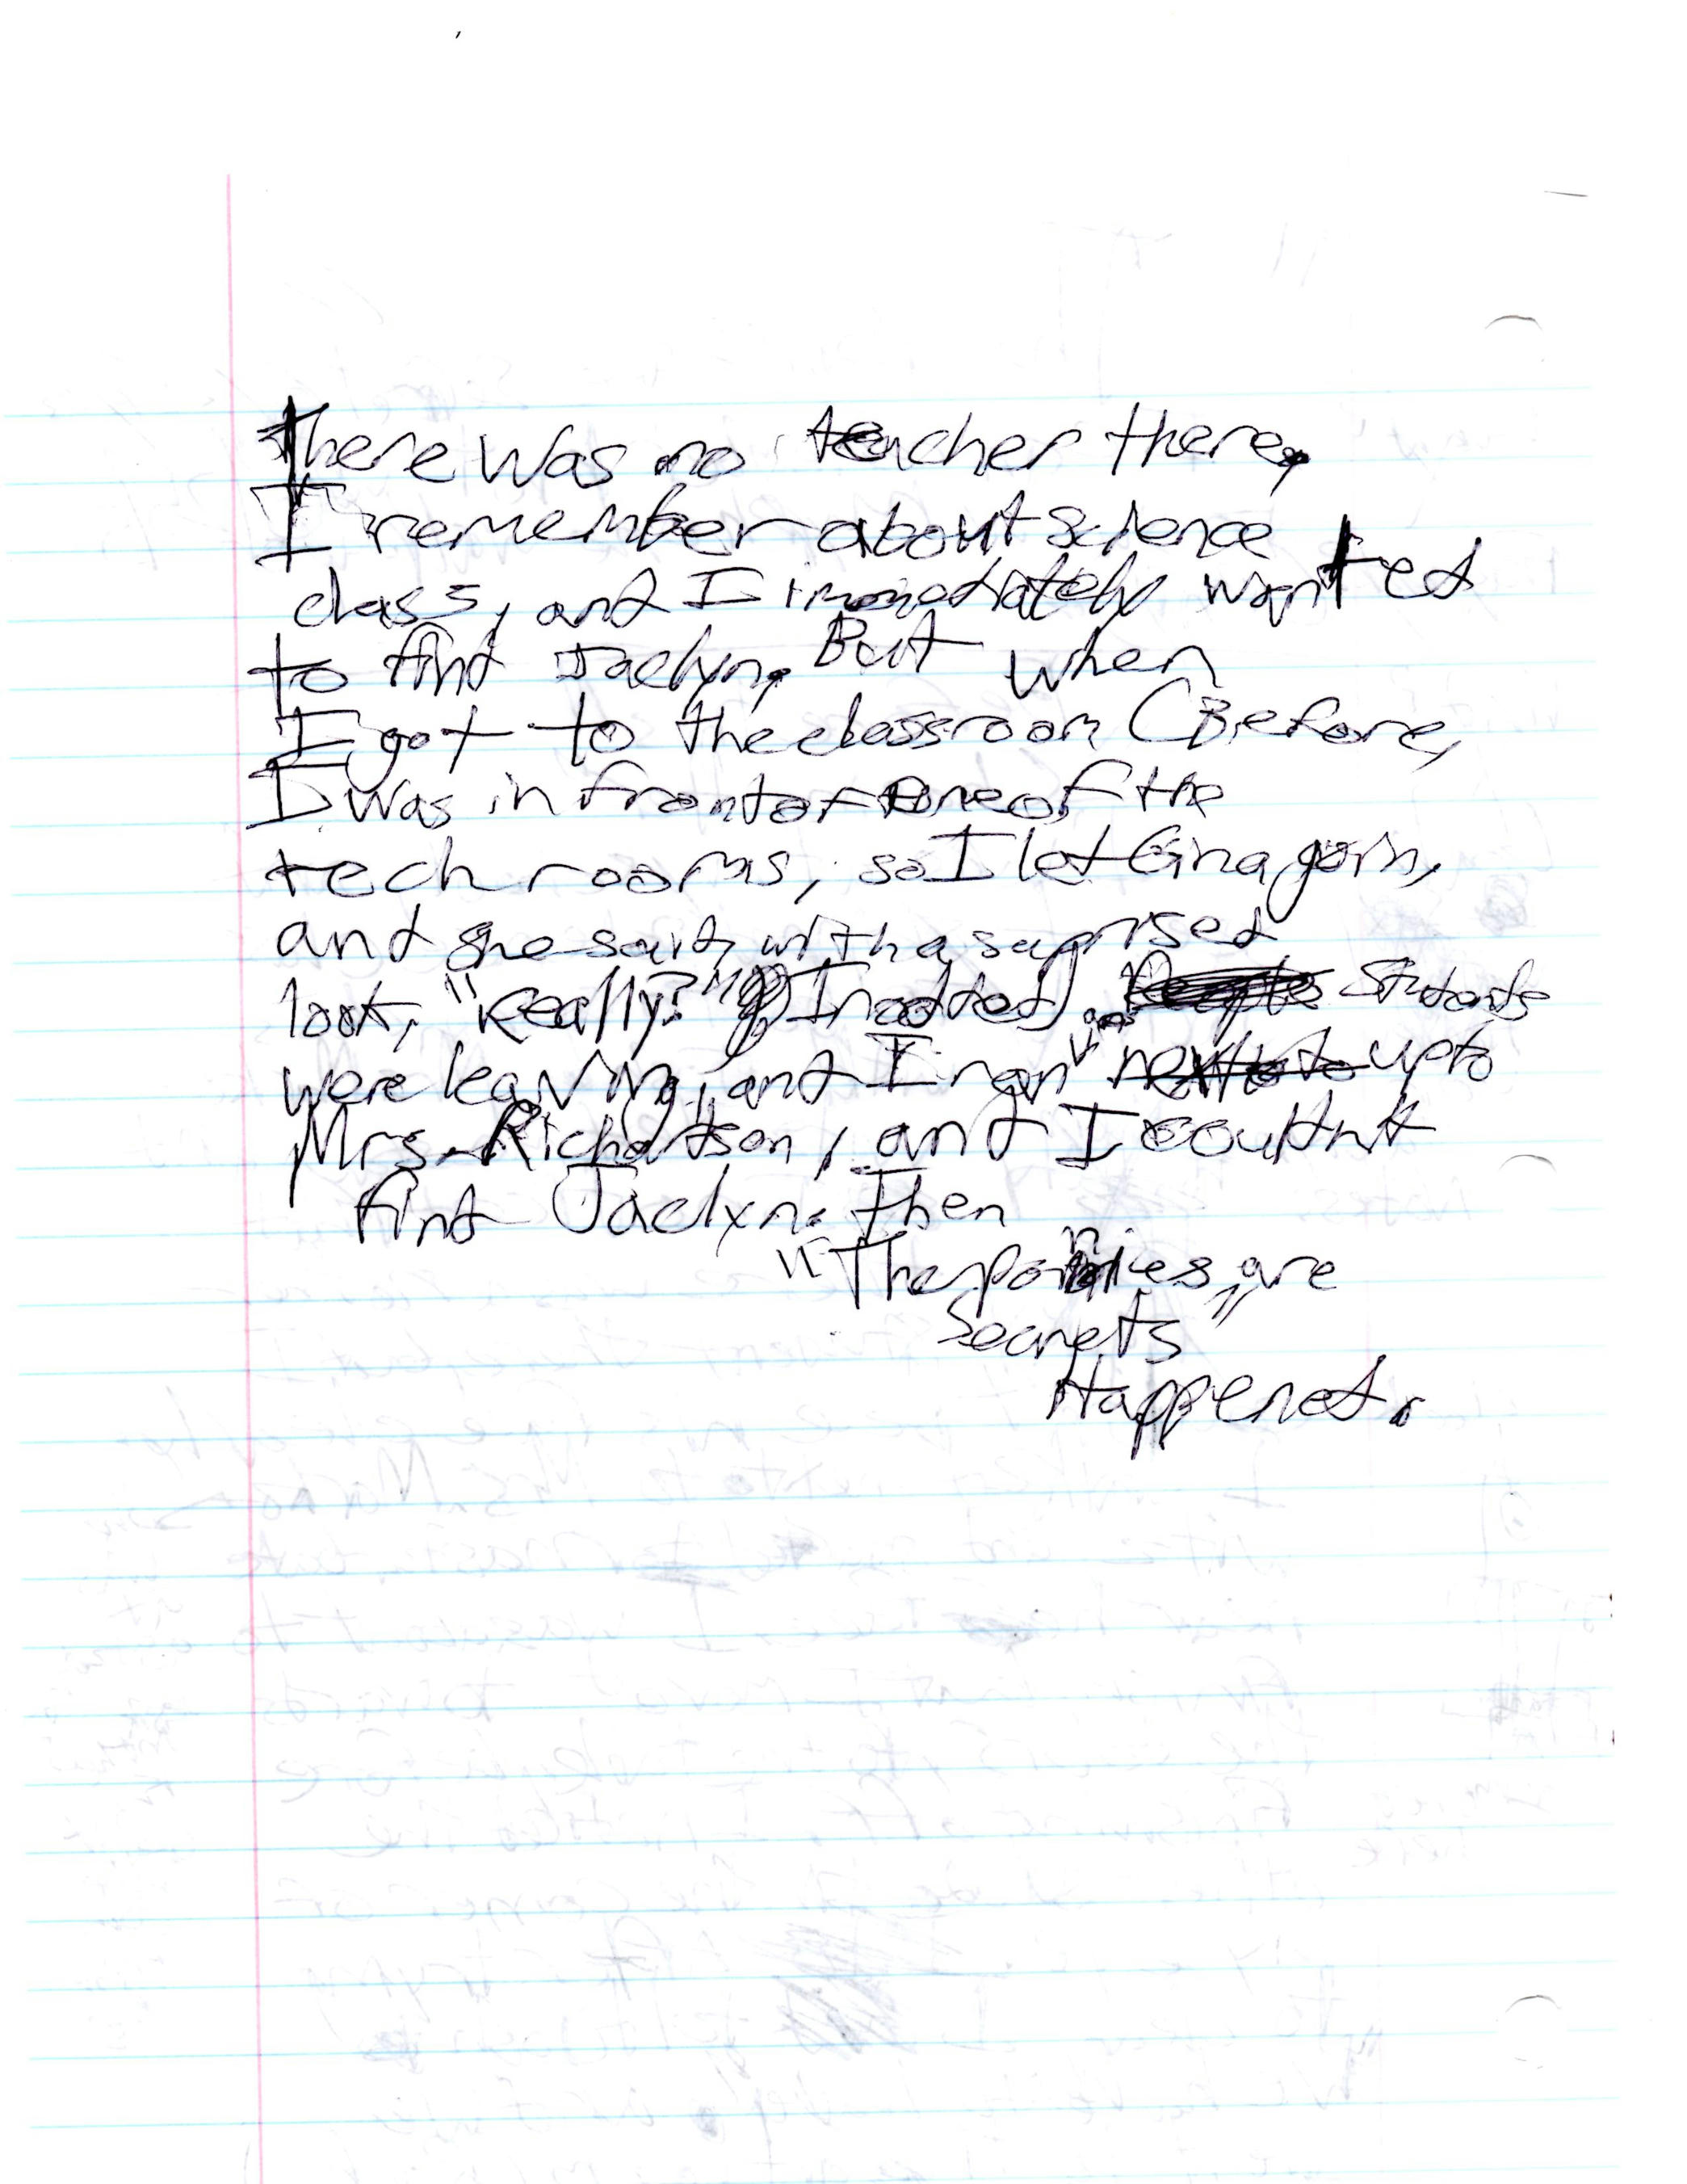 There was no teacher there.
I remember about science
class, and I immediately wanted
to find Jaclyn. But when
I got to the classroom (Before,
I was in front of one of the
tech rooms, so I let Gina go in,
and she said, with a suprised
look, "Really?" I nodded) Students
were leaving, and I ran up to
Mrs. Richardson, and I couldn't
find Jaclyn. Then
"The ponies are
Secrets"
Happened.